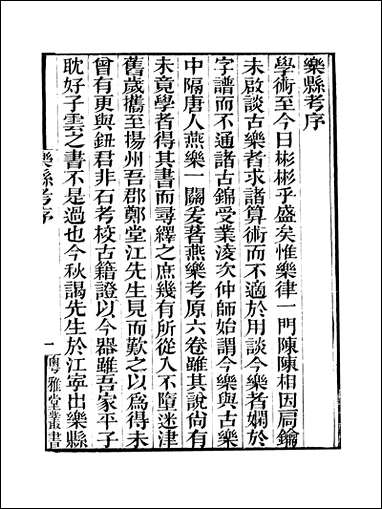 樂縣考序
學術至今日彬彬乎盛矣惟樂律一門陳陳相因扃鑰
未啟談古樂者求諸算術而不適於用談今樂者嫻於
字譜而不通諸古錦受業淩次仲師始謂今樂與古樂
中隔唐人燕樂一關爰著燕樂考原六卷雖其說尚有
未竟學者得其書而尋繹之庶幾有所從入不墮迷津
舊歲攜至揚州吾郡鄭堂江先生見而歎之以爲得未
曾有更與鈕君非石考校古籍證以今器雖吾家平子
耽好子雲之書不是過也今秋謁先生於江寧出樂縣
樂縣考序
一
粵雅堂叢書